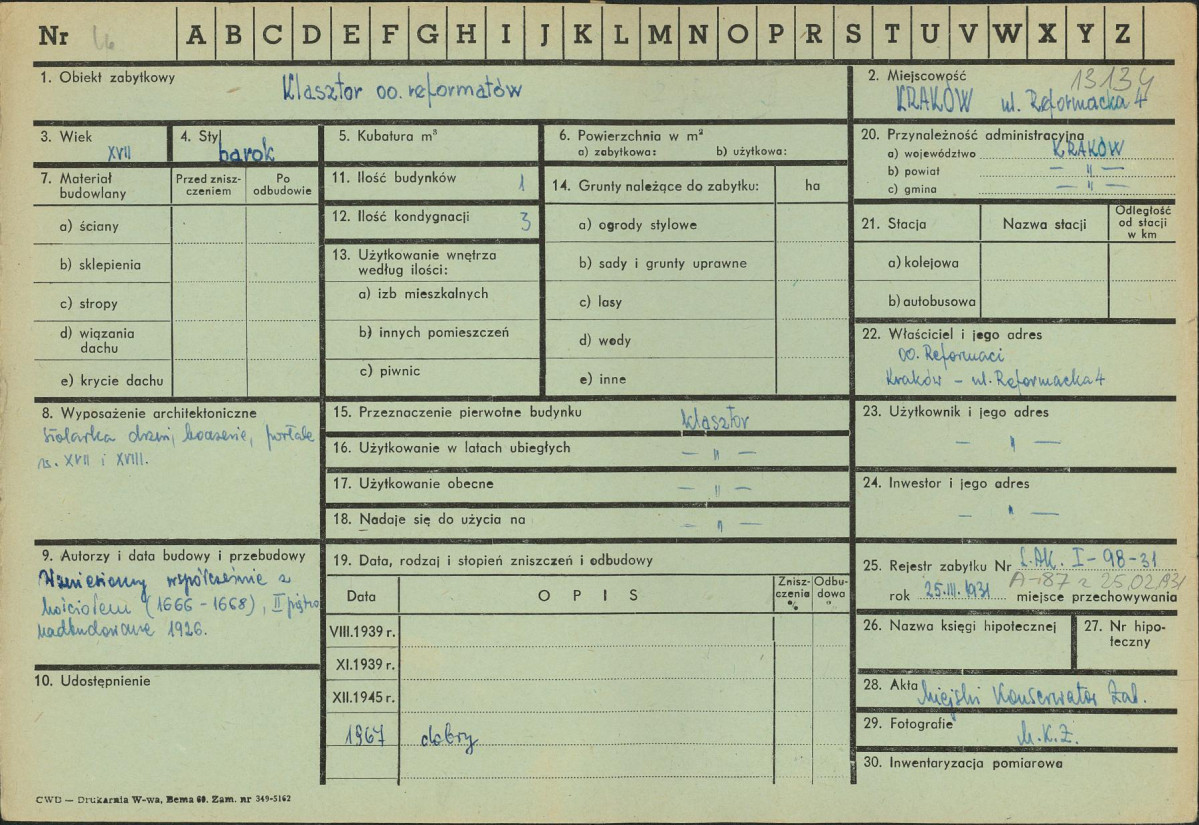 Nr
A B C D E F G H I J K L M N O P R S T U V W X Y Z
1. Obiekt zabytkowy
Klasztor oo. reformatów
2. Miejscowość
13134
KRAKÓW ul. Reformacka 4
3. Wiek
XVII
4. Styl
barok
5. Kubatura m³
6. Powierzchnia w m²
a) zabytkowa: b) użytkowa:
20. Przynależność administracyjna
a) województwo KRAKÓW
b) powiat — " —
c) gmina — " —
7. Materiał budowlany
Przed znisz-
czeniem
Po
odbudowie
a) ściany
b) sklepienia
c) stropy
d) wiązania
dachu
e) krycie dachu
11. Ilość budynków 1
12. Ilość kondygnacji 3
13. Użytkowanie wnętrza
według ilości:
a) izb mieszkalnych
b) innych pomieszczeń
c) piwnic
14. Grunty należące do zabytku: ha
a) ogrody stylowe
b) sady i grunty uprawne
c) lasy
d) wody
e) inne
21. Stacja
Nazwa stacji
Odległość
od stacji
w km
a) kolejowa
b) autobusowa
22. Właściciel i jego adres
oo. Reformaci
Kraków – ul. Reformacka 4
8. Wyposażenie architektoniczne
stolarka drzwi, boazerie, portale
w. XVII i XVIII.
15. Przeznaczenie pierwotne budynku klasztor
16. Użytkowanie w latach ubiegłych — " —
17. Użytkowanie obecne — " —
18. Nadaje się do użycia na — " —
23. Użytkownik i jego adres
— " —
24. Inwestor i jego adres
— " —
9. Autorzy i data budowy i przebudowy
Wzniesiony współcześnie z
kościołem (1666 - 1668), II piętro
nadbudowane 1926.
10. Udostępnienie
19. Data, rodzaj i stopień zniszczeń i odbudowy
Data
OPIS
Znisz-
czenia
%
Odbu-
dowa
"
VIII.1939 r.
XI.1939 r.
XII.1945 r.
1967 dobry
25. Rejestr zabytku Nr L.AK. I-98-31
A-187 z 25.02.1931
rok 25.III.1931 miejsce przechowywania
26. Nazwa księgi hipotecznej
27. Nr hipo-
teczny
28. Akta Miejski Konserwator Zab.
29. Fotografie M.K.Z.
30. Inwentaryzacja pomiarowa
CWD — Drukarnia W-wa, Bema 60. Zam. nr 349-5162